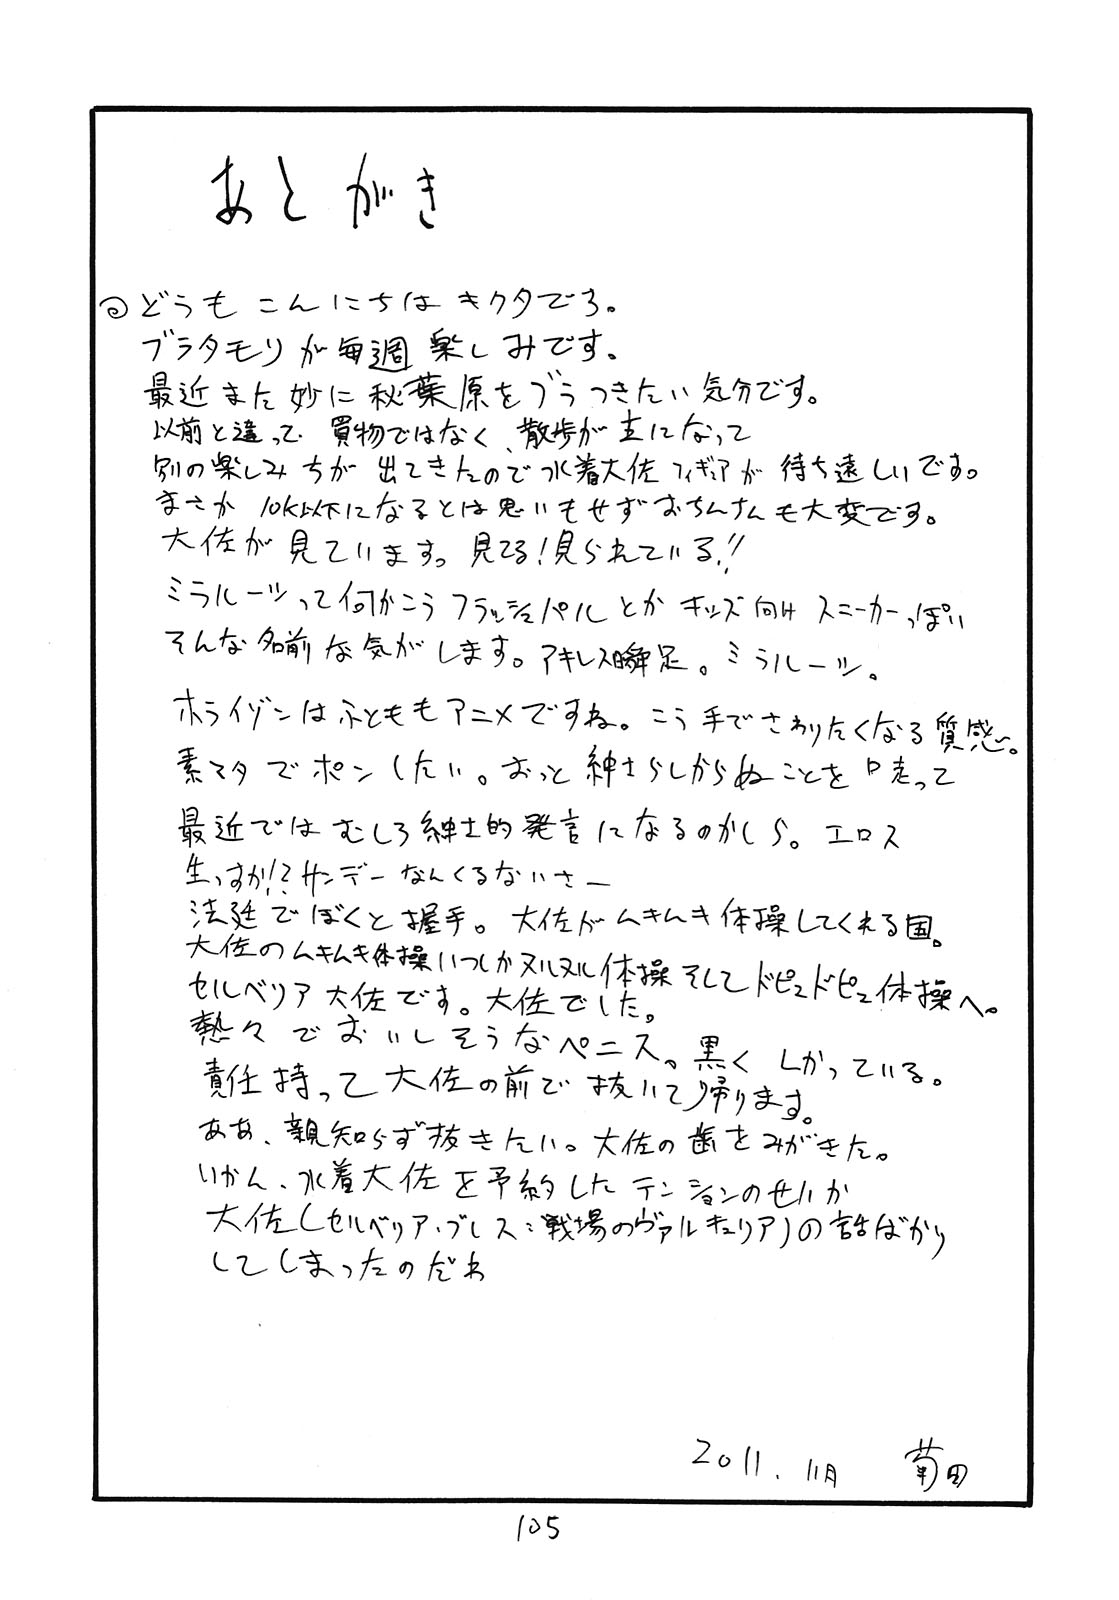 あとがき
どうも こんにちは キクタでる。
ブラタモリが毎週 楽しみです。
最近また妙に秋葉原をブラつきたい気分です。
以前と違って 買物ではなく、散歩が主になって
別の楽しみちが 出てきたので水着大佐フィギュアが 待ち遠しいです。
まさか 10K以下になるとは思いもせずおちんさんも大変です。
大佐が見ています。見てる!見られている!!
ミラルーツって何かこうフラッシュパルとか キッズ向け スニーカーっぽい
そんな名前な気がします。アキレス瞬足。ミラルーツ。
ホライゾンはふとももアニメですね。こう手でさわりたくなる質感。
素マタでポンしたい。おっと紳士らしからぬことを口走って
最近ではむしろ紳士的発言になるのかしら。エロス
生っすか!?サンデーなんくるないさー
法廷でぼくと握手。大佐がムキムキ体操してくれる国。
大佐のムキムキ体操いつしかヌルヌル体操そしてドピュドピュ体操へ。
セルベリア大佐です。大佐でした。
熱々でおいしそうなペニス。黒く しかっている。
責任持って大佐の前で抜いて帰ります。
ああ、親知らず抜きたい。大佐の歯をみがきた。
いかん、水着大佐を予約したテンションのせいか
大佐(セルベリア・ブレス:戦場のヴァルキュリア)の話ばかり
してしまったのだわ
2011.11月 菊田
105